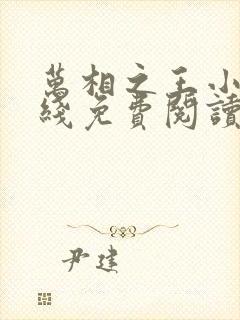 萬相之王小
綫免費閱讀
尹建